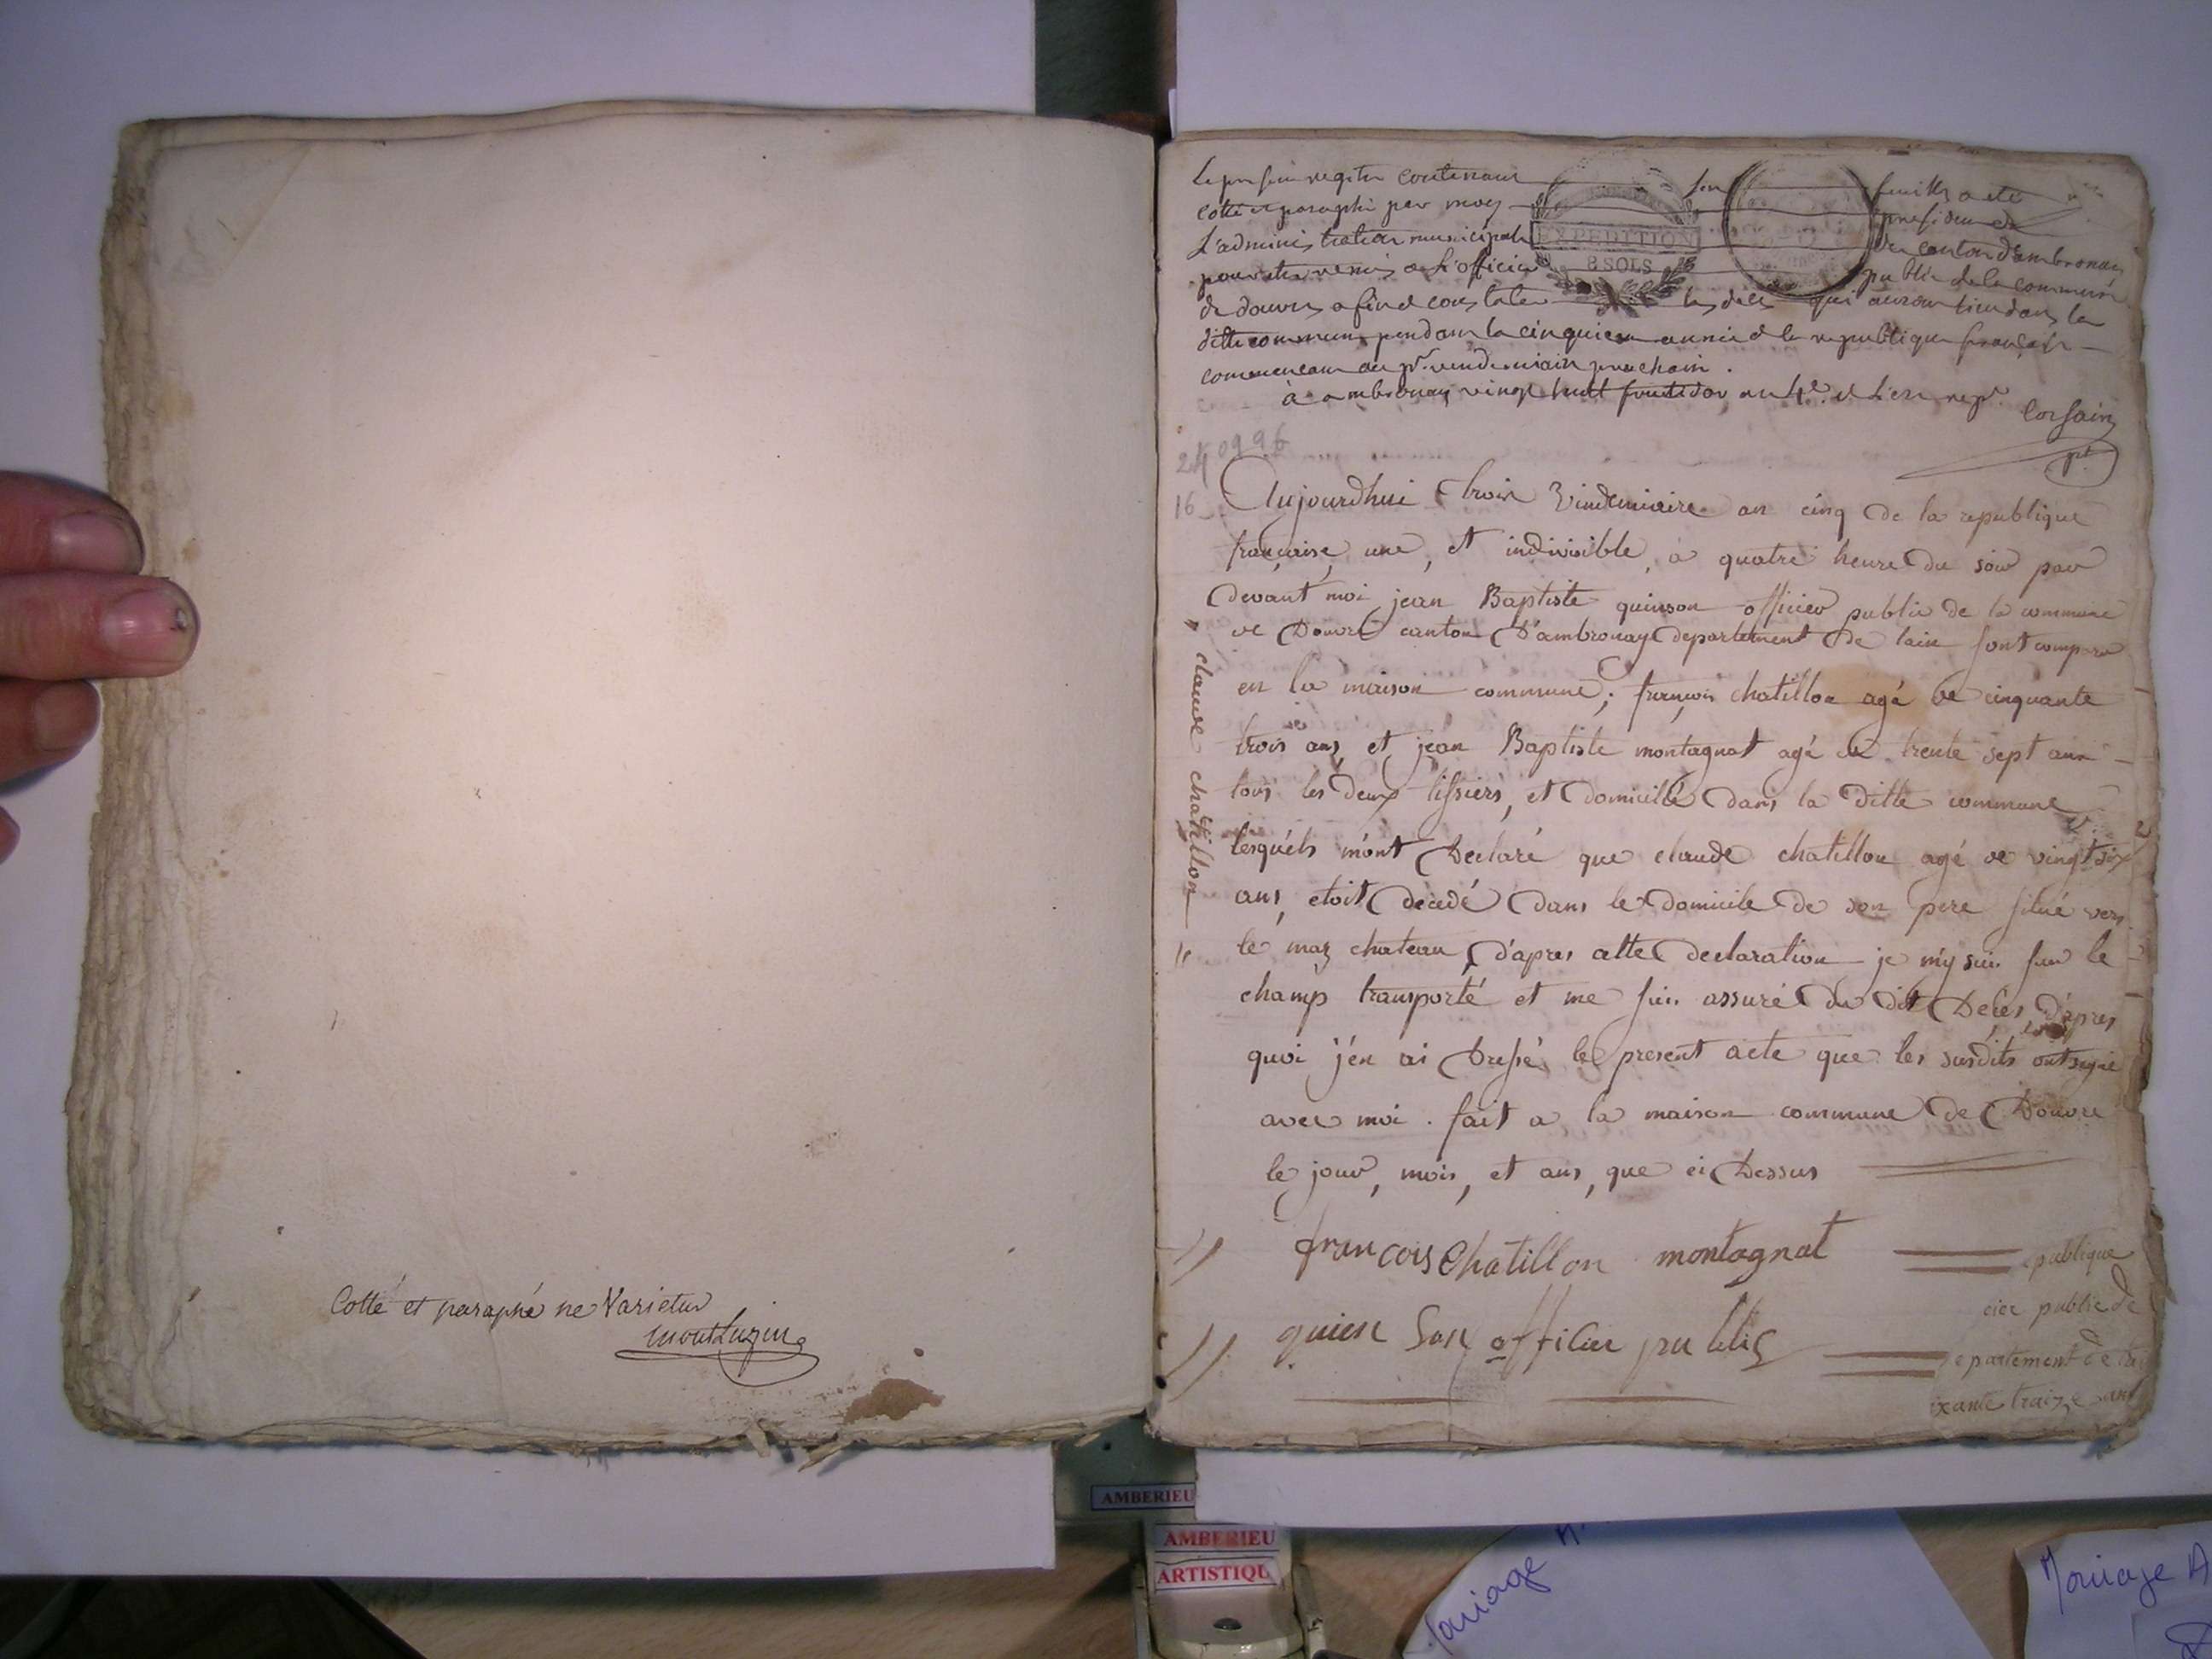 Cotté et paraphé ne Varietur
montluzin
Le present registre contenant six feuillets a eté
cotté et paraphé par moy president de
L'administration municipale du canton d'ambronay
pour etre remis a L'officier public de la commune
de douvre afin de constater les deces qui auront lieu dans la
ditte commune pendant la cinquieme année de la republique française
commencant au pr. vendemiaire prochain .
à ambronay vingt huit fructidor an 4e. de L'ere rep.
EXPEDITION
8 SOLS
24 0996
16
Aujourdhui trois Vindemiaire an cinq de la republique
française, une, et indivisible, a quatre heure du soir par
devant moi jean Baptiste quinson officier public de la commune
de Douvre canton D'ambronay departement de lain sont comparu
en la maison commune; françois chatillon agé de cinquante
trois ans, et jean Baptiste montagnat agé de trente sept ans
tous les deux tissiers, et domicillé dans la ditte commune
lesquels m'ont Declaré que claude chatillon agé de vingt six
ans, etoit decedé dans le domicile de son pere situé vers
le maz chateau, d'apres cette declaration je m'y suis sur le
champ transporté et me suis assuré du dit Decès, d'apres
quoi j'en ai Dressé le present acte que les susdits ont signé
avec moi . fait a la maison commune de Douvre
le jour, mois, et ans, que ci Dessus
claude chatillon
francois Chatillon montagnat
quien Son officier public
epublique
cier public de
epartement de
ixante traize ans
AMBERIEU
AMBERIEU
ARTISTIQU
Mariage A